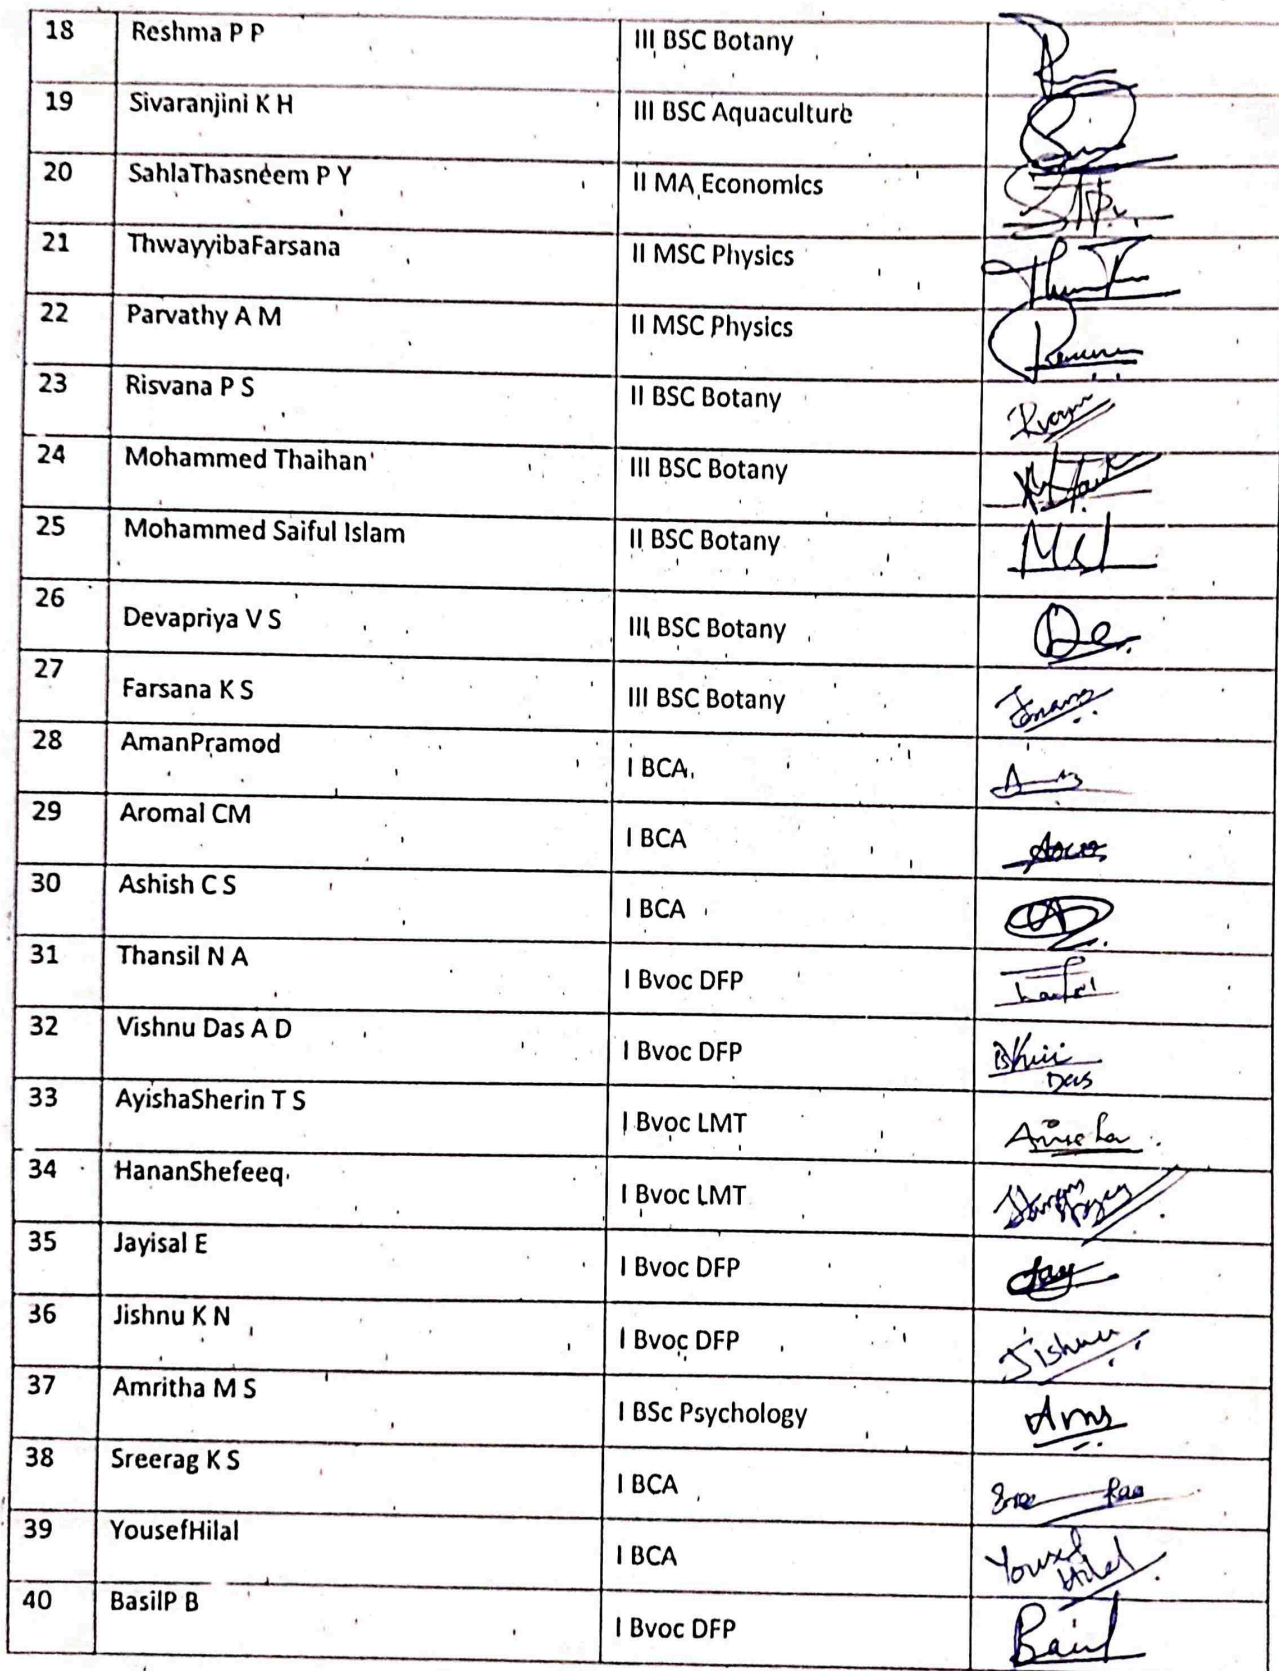 18 Reshma P P III BSC Botany
19 Sivaranjini K H III BSC Aquaculture
20 SahlaThasneem P Y II MA Economics
21 ThwayyibaFarsana II MSC Physics
22 Parvathy A M II MSC Physics
23 Risvana P S II BSC Botany
24 Mohammed Thaihan III BSC Botany
25 Mohammed Saiful Islam II BSC Botany
26 Devapriya V S III BSC Botany
27 Farsana K S III BSC Botany
28 AmanPramod I BCA
29 Aromal CM I BCA
30 Ashish C S I BCA
31 Thansil N A I Bvoc DFP
32 Vishnu Das A D I Bvoc DFP
Das
33 AyishaSherin T S I Bvoc LMT
34 HananShefeeq I Bvoc LMT
35 Jayisal E I Bvoc DFP
36 Jishnu K N I Bvoc DFP Jishnu
37 Amritha M S I BSc Psychology
38 Sreerag K S I BCA
39 YousefHilal I BCA Yousef
Hilal
40 BasilP B I Bvoc DFP